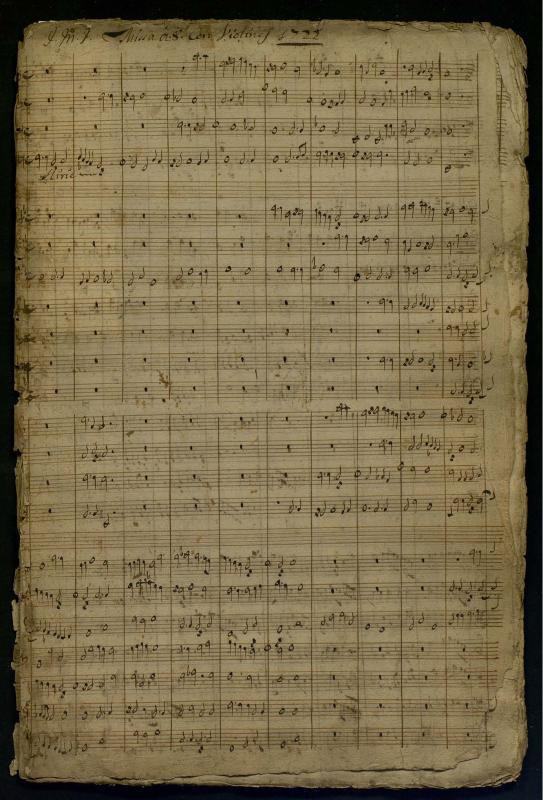 J. M. J. Missa a 8. Con Violines 1722
Kirie